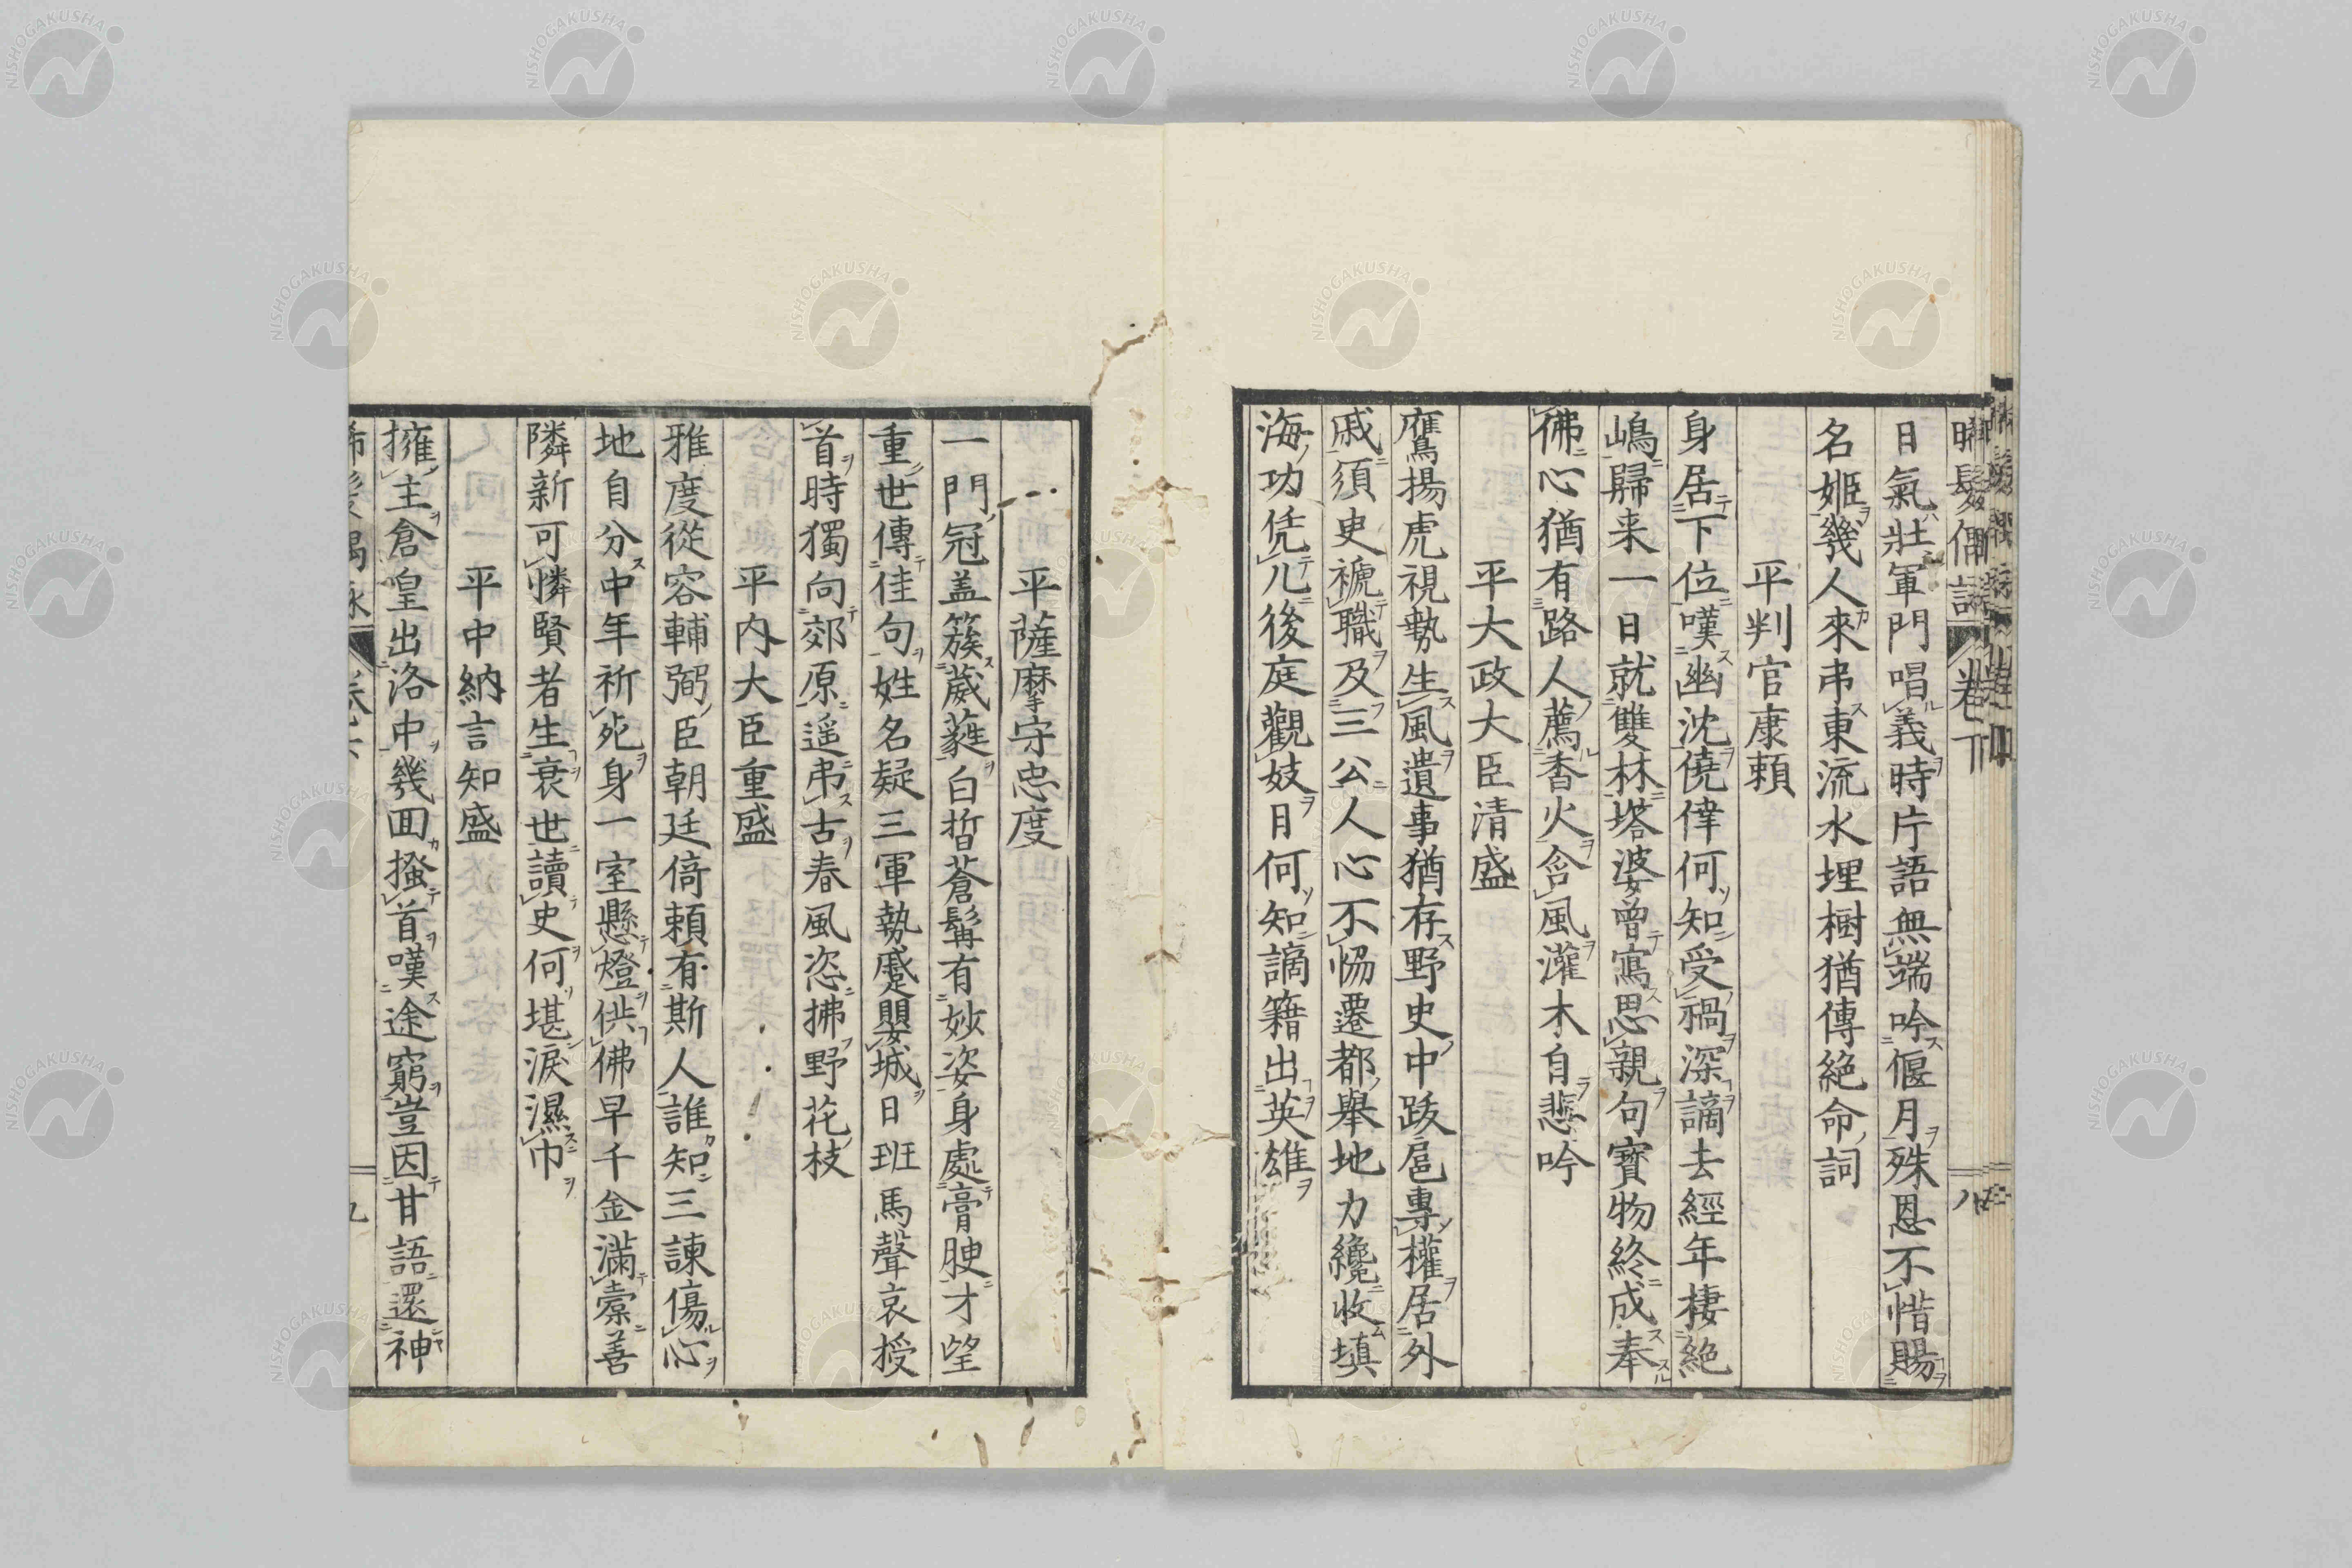 日氣壯軍門唱義時片語無端吟偃月殊恩不惜賜
名姬幾人來弔東流水埋樹猶傳絶命詞
平判官康頼
身居下位嘆幽沈僥倖何知受禍深謫去經年棲絶
嶋歸来一日就雙林塔婆曾寫思親句寳物終成奉
佛心猶有路人薦香火含風灌木自悲吟
平大政大臣清盛
鷹揚虎視勢生風遺事猶存野史中跋扈專權居外
戚須史褫職及三公人心不恊遷都舉地力纔收填
海功凭几後庭觀妓日何知謫籍出英雄
平薩摩守忠度
一門冠盖簇葳蕤白晳蒼髯有妙姿身處膏腴才望
重世傳佳句姓名疑三軍勢蹙嬰城日班馬聲哀授
首時獨向郊原遥弔古春風恣拂野花枝
平内大臣重盛
雅度從容輔弼臣朝廷倚頼有斯人誰知三諫傷心
地自分中年祈死身一室懸燈供佛早千金滿橐善
隣新可憐賢者生衰世讀史何堪淚濕巾
平中納言知盛
擁主倉皇出洛中幾回搔首嘆途窮豈因甘語還神
卷下
八
九
NISHOGAKUSHA